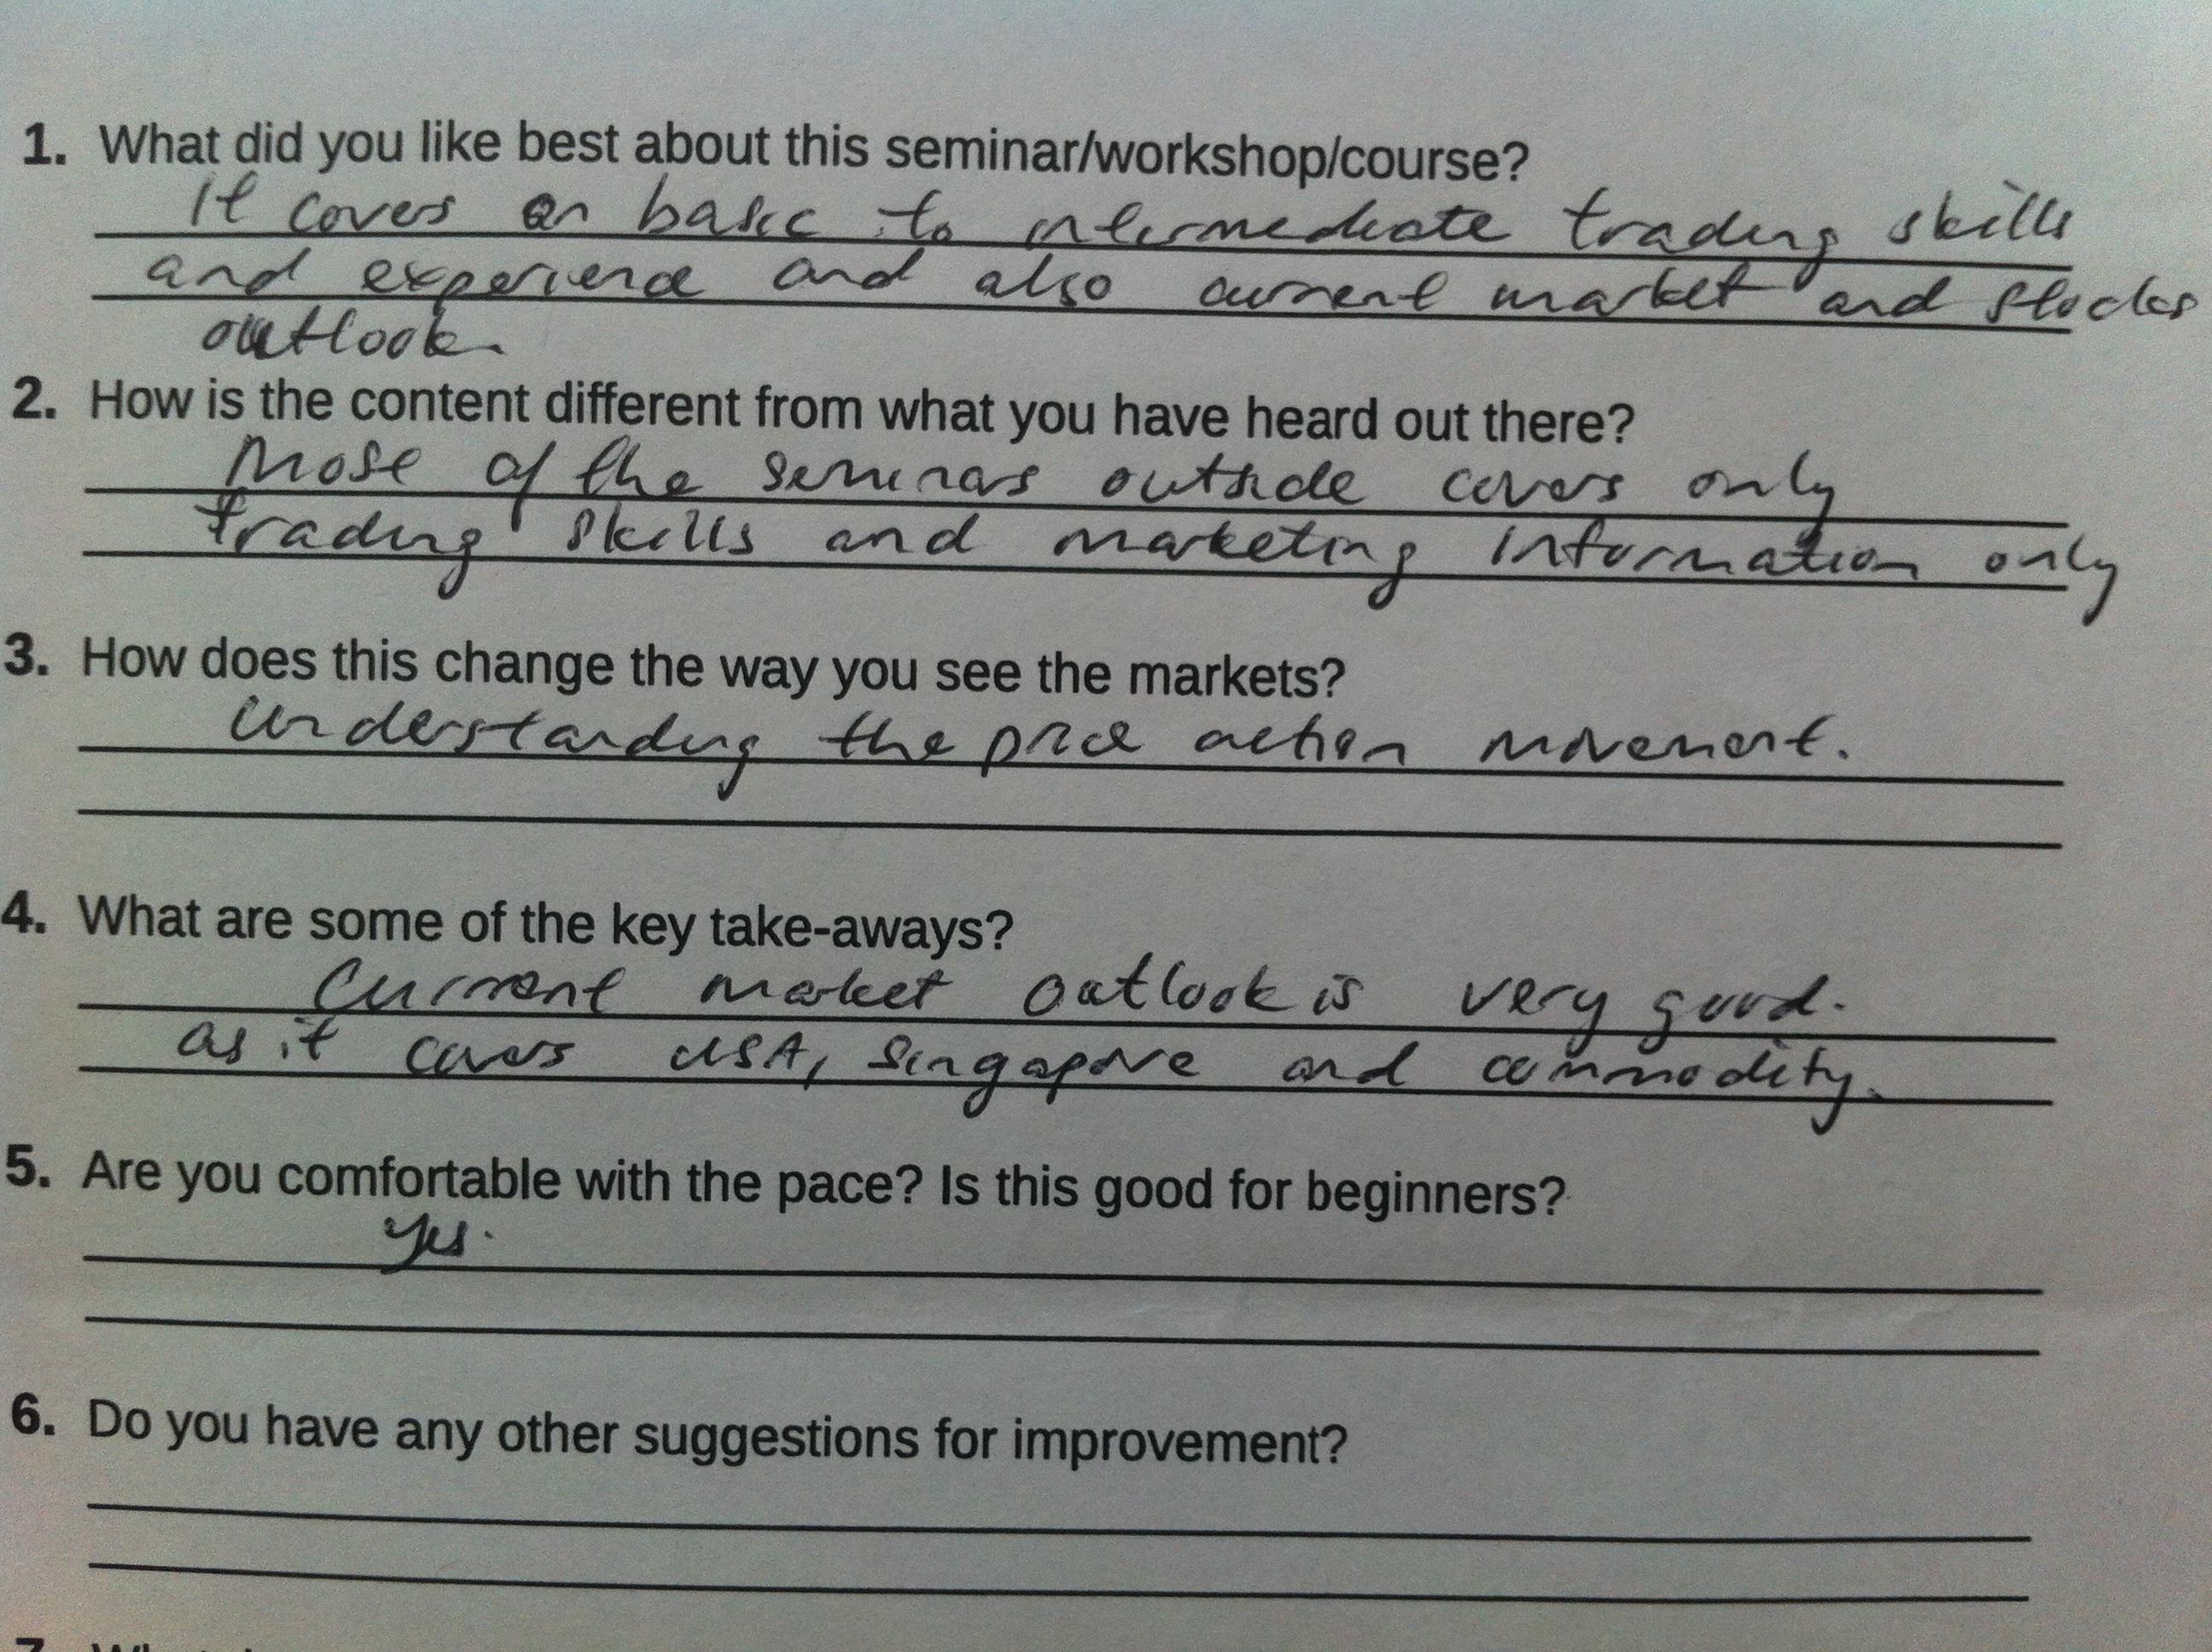 1. What did you like best about this seminar/workshop/course?
It covers on basic to intermediate trading skills
and experience and also current market and stocks
outlook.
2. How is the content different from what you have heard out there?
Most of the seminars outside covers only
trading skills and marketing information only
3. How does this change the way you see the markets?
Understanding the price action movement.
4. What are some of the key take-aways?
Current market outlook is very good.
as it covers USA, Singapore and commodity.
5. Are you comfortable with the pace? Is this good for beginners?
Yes.
6. Do you have any other suggestions for improvement?